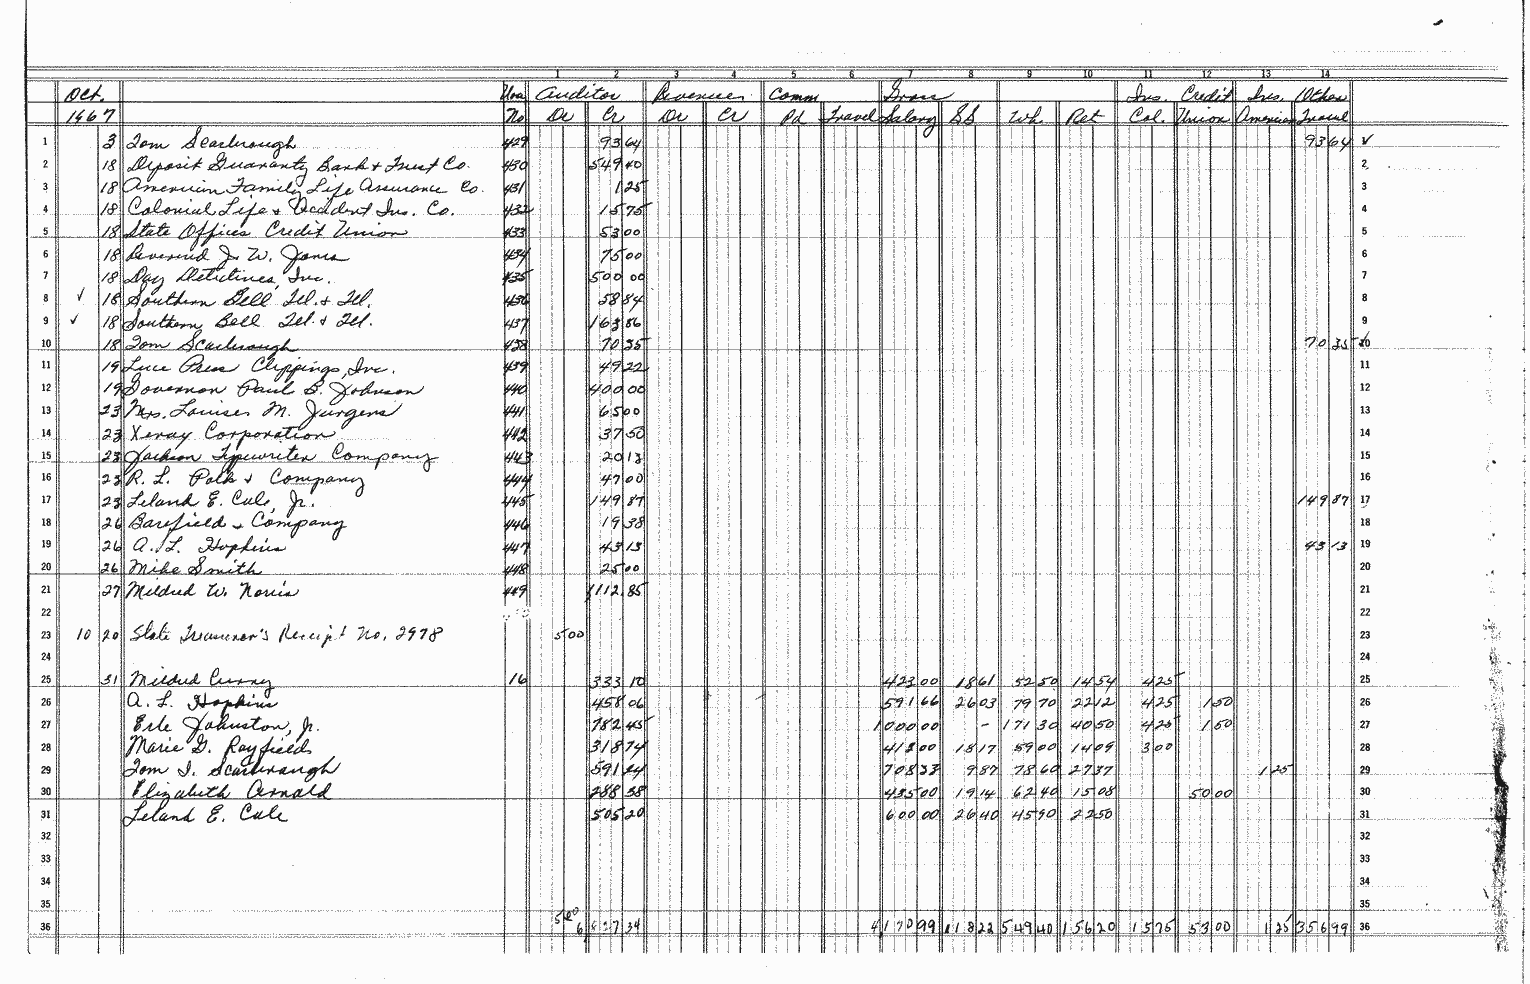 1 2 3 4 5 6 7 8 9 10 11 12 13 14
Oct. Auditor Revenues Comm Gross Ins. Credit Ins. Other
1967 No Dr Cr Dr Cr Pd Travel Salary SS Wh. Ret Col. Union American Travel
1 3 Tom Scarbrough 429 93 64 93 64 ✓ 1
2 18 Deposit Guaranty Bank & Trust Co. 430 549 40 2
3 18 American Family Life Assurance Co. 431 1 25 3
4 18 Colonial Life & Accident Ins. Co. 432 15 75 4
5 18 State Offices Credit Union 433 53 00 5
6 18 Reverend J. W. Jones 434 75 00 6
7 18 Day Detectives, Inc. 435 500 00 7
8 ✓ 18 Southern Bell Tel. & Tel. 436 58 84 8
9 ✓ 18 Southern Bell Tel. & Tel. 437 163 86 9
10 18 Tom Scarbrough 438 70 35 70 35 ✓ 10
11 19 Luce Press Clippings, Inc. 439 49 22 11
12 19 Governor Paul B. Johnson 440 400 00 12
13 23 Mrs. Louise M. Jurgens 441 65 00 13
14 23 Xerox Corporation 442 37 50 14
15 23 Jackson Typewriter Company 443 20 13 15
16 23 R. L. Polk & Company 444 47 00 16
17 23 Leland E. Cole, Jr. 445 149 87 149 87 17
18 26 Barefield & Company 446 19 38 18
19 26 A. L. Hopkins 447 43 13 43 13 19
20 26 Mike Smith 448 25 00 20
21 27 Mildred W. Norris 449 1112.85 21
22 22
23 10 20 State Treasurer's Receipt No. 2978 5 00 23
24 24
25 31 Mildred Curry 16 333 10 423 00 18 61 52 50 14 54 4 25 25
26 A. L. Hopkins 458 06 591 66 26 03 79 70 22 12 4 25 1 50 26
27 Erle Johnston, Jr. 782 45 1000 00 - 171 30 40 50 4 25 1 50 27
28 Marie G. Rayfields 318 74 413 00 18 17 59 00 14 09 3 00 28
29 Tom I. Scarbrough 591 24 708 33 9 87 78 60 27 37 1 25 29
30 Elizabeth Arnold 288 38 435 00 19 14 62 40 15 08 50 00 30
31 Leland E. Cole 505 20 600 00 26 40 45 90 22 50 31
32 32
33 33
34 34
35 35
36 5 00 6 827 34 4170 99 118 22 549 40 156 20 15 75 53 00 1 25 356 99 36